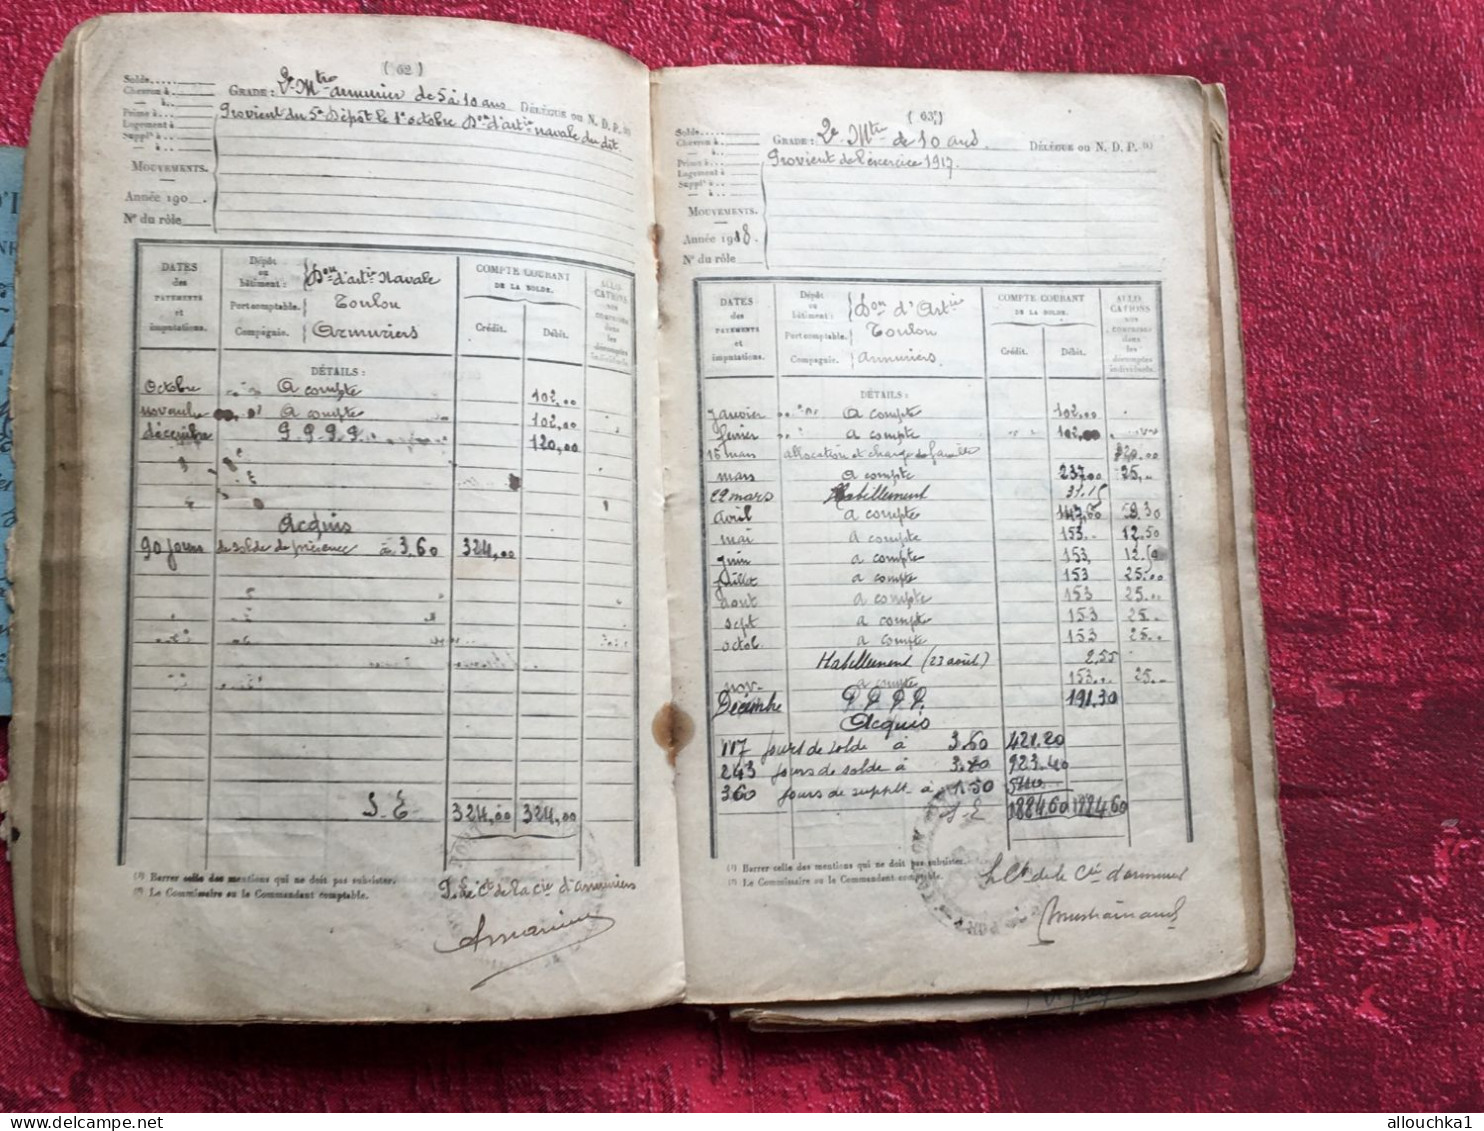 ( 62 )
Solde
Chevron à
— à
Prime à
Logement à
Suppl<sup>t</sup> à
GRADE : 2e Mtre armurier de 5 à 10 ans DÉLÉGUE OU N. D. P. (1)
Provient du 5e Dépôt le 1er octobre Don d'artie navale du dit
MOUVEMENTS.
Année 190
N° du rôle
DATES des PAYEMENTS et imputations.
Dépôt ou bâtiment : Don d'artie Navale
Port comptable. Toulon
Compagnie. Armuriers
COMPTE COURANT DE LA SOLDE.
Crédit. Débit.
ALLOCATIONS non comprises dans les décomptes individuels.
DÉTAILS :
Octobre A compte 102,00
novembre A compte 102,00
décembre P.P.P.P. 120,00
Acquis
90 jours de solde de présence à 3.60 324,00
S. E 324,00 324,00
(1) Barrer celle des mentions qui ne doit pas subsister.
(2) Le Commissaire ou le Commandant comptable.
de la Cie d'armuriers
( 63 )
Solde
Chevron à
— à
Prime à
Logement à
Suppl<sup>t</sup> à
— à
GRADE : 2e Mtre de 10 ans DÉLÉGUE OU N. D. P. (1)
Provient de l'exercice 1917.
MOUVEMENTS.
Année 1918.
N° du rôle
DATES des PAYEMENTS et imputations.
Dépôt ou bâtiment : Don d'Artie
Port comptable. Toulon
Compagnie. armuriers
COMPTE COURANT DE LA SOLDE.
Crédit. Débit.
ALLOCATIONS non comprises dans les décomptes individuels.
DÉTAILS :
Janvier A compte 102,00
février a compte 102,00
15 mars allocation et charge de famille
mars a compte 237,00 25,..
22 mars Habillement 31.15
avril a compte 147,60
mai a compte 153.. 12.50
juin a compte 153, 12.50
juillet a compte 153 25.00
aout a compte 153 25...
sept a compte 153 25..
octob. a compte 153 25..
Habillement (23 août) 2.55
nov- a compte 153... 25..
Décembre P.P.P.P. 191.30
Acquis
117 jours de solde à 3.60 421.20
243 jours de solde à 3.80 923.40
360 jours de supplt à 1.50 540
S. E 1884.60 1884.60
(1) Barrer celle des mentions qui ne doit pas subsister.
(2) Le Commissaire ou le Commandant comptable.
de la Cie d'armuriers
allouchka1